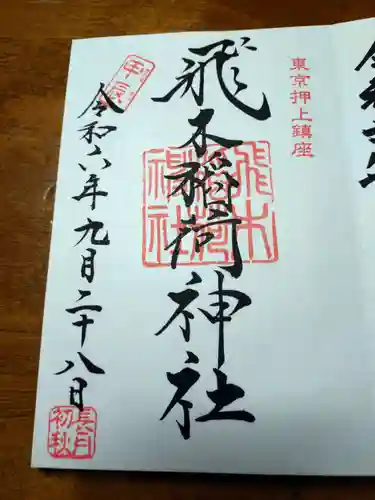 東京押上鎮座
飛木稲荷神社
飛木稲荷神社
甲辰
令和六年九月二十八日
長月
初秋